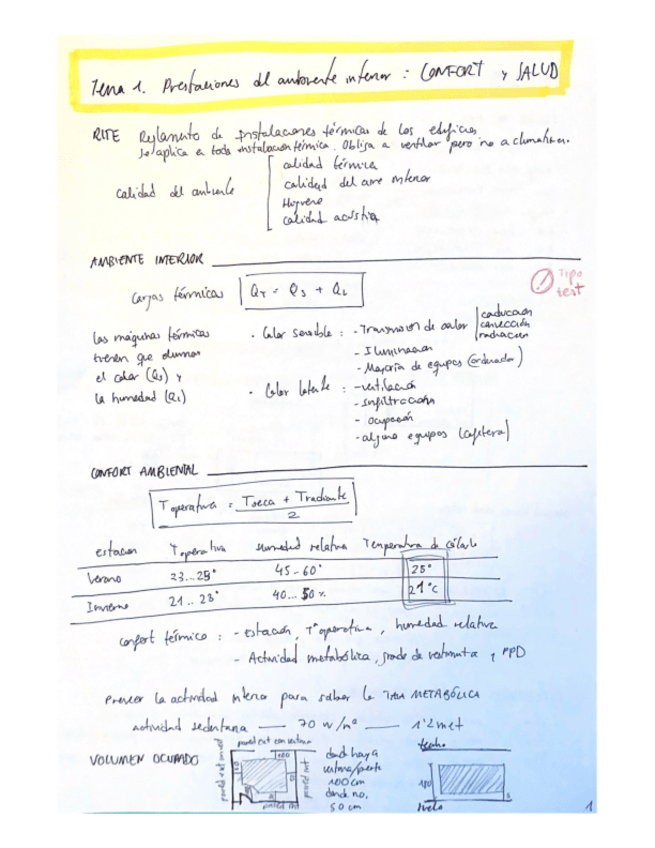 Tema 1. Prestaciones del ambiente interior: CONFORT y SALUD
RITE Reglamento de instalaciones térmicas de los edificios,
se aplica a toda instalación térmica. Obliga a ventilar pero no a climatizar.
calidad térmica
calidad del aire interior
calidad del ambiente
Higiene
calidad acústica
AMBIENTE INTERIOR
Tipo test
Cargas térmicas QT = QS + QL
Las máquinas térmicas
tienen que eliminar
el calor (QS) y
la humedad (QL)
- Calor sensible: - Transmisión de calor
conducción
convección
radiación
- Iluminación
- Mayoría de equipos (ordenador)
- Calor latente: - ventilación
- Infiltración
- ocupación
- alguno equipos (cafetera)
CONFORT AMBIENTAL
Toperativa = Tseca + Tradiante
2
estación Toperativa humedad relativa Temperatura de cálculo
Verano 23...25° 45..60° 25°
Invierno 21..23° 40...50% 21°C
confort térmico: - estación, Tª operativa, humedad relativa
- Actividad metabólica, grado de vestimenta y PPD
Prever la actividad interior para saber la TASA METABÓLICA
actividad sedentaria — 70 w/m² — 1'2 met
VOLUMEN OCUPADO
pared ext con ventana
100
pared int
donde haya
ventana/puerta
100 cm
donde no,
50 cm
techo
180
suelo
1